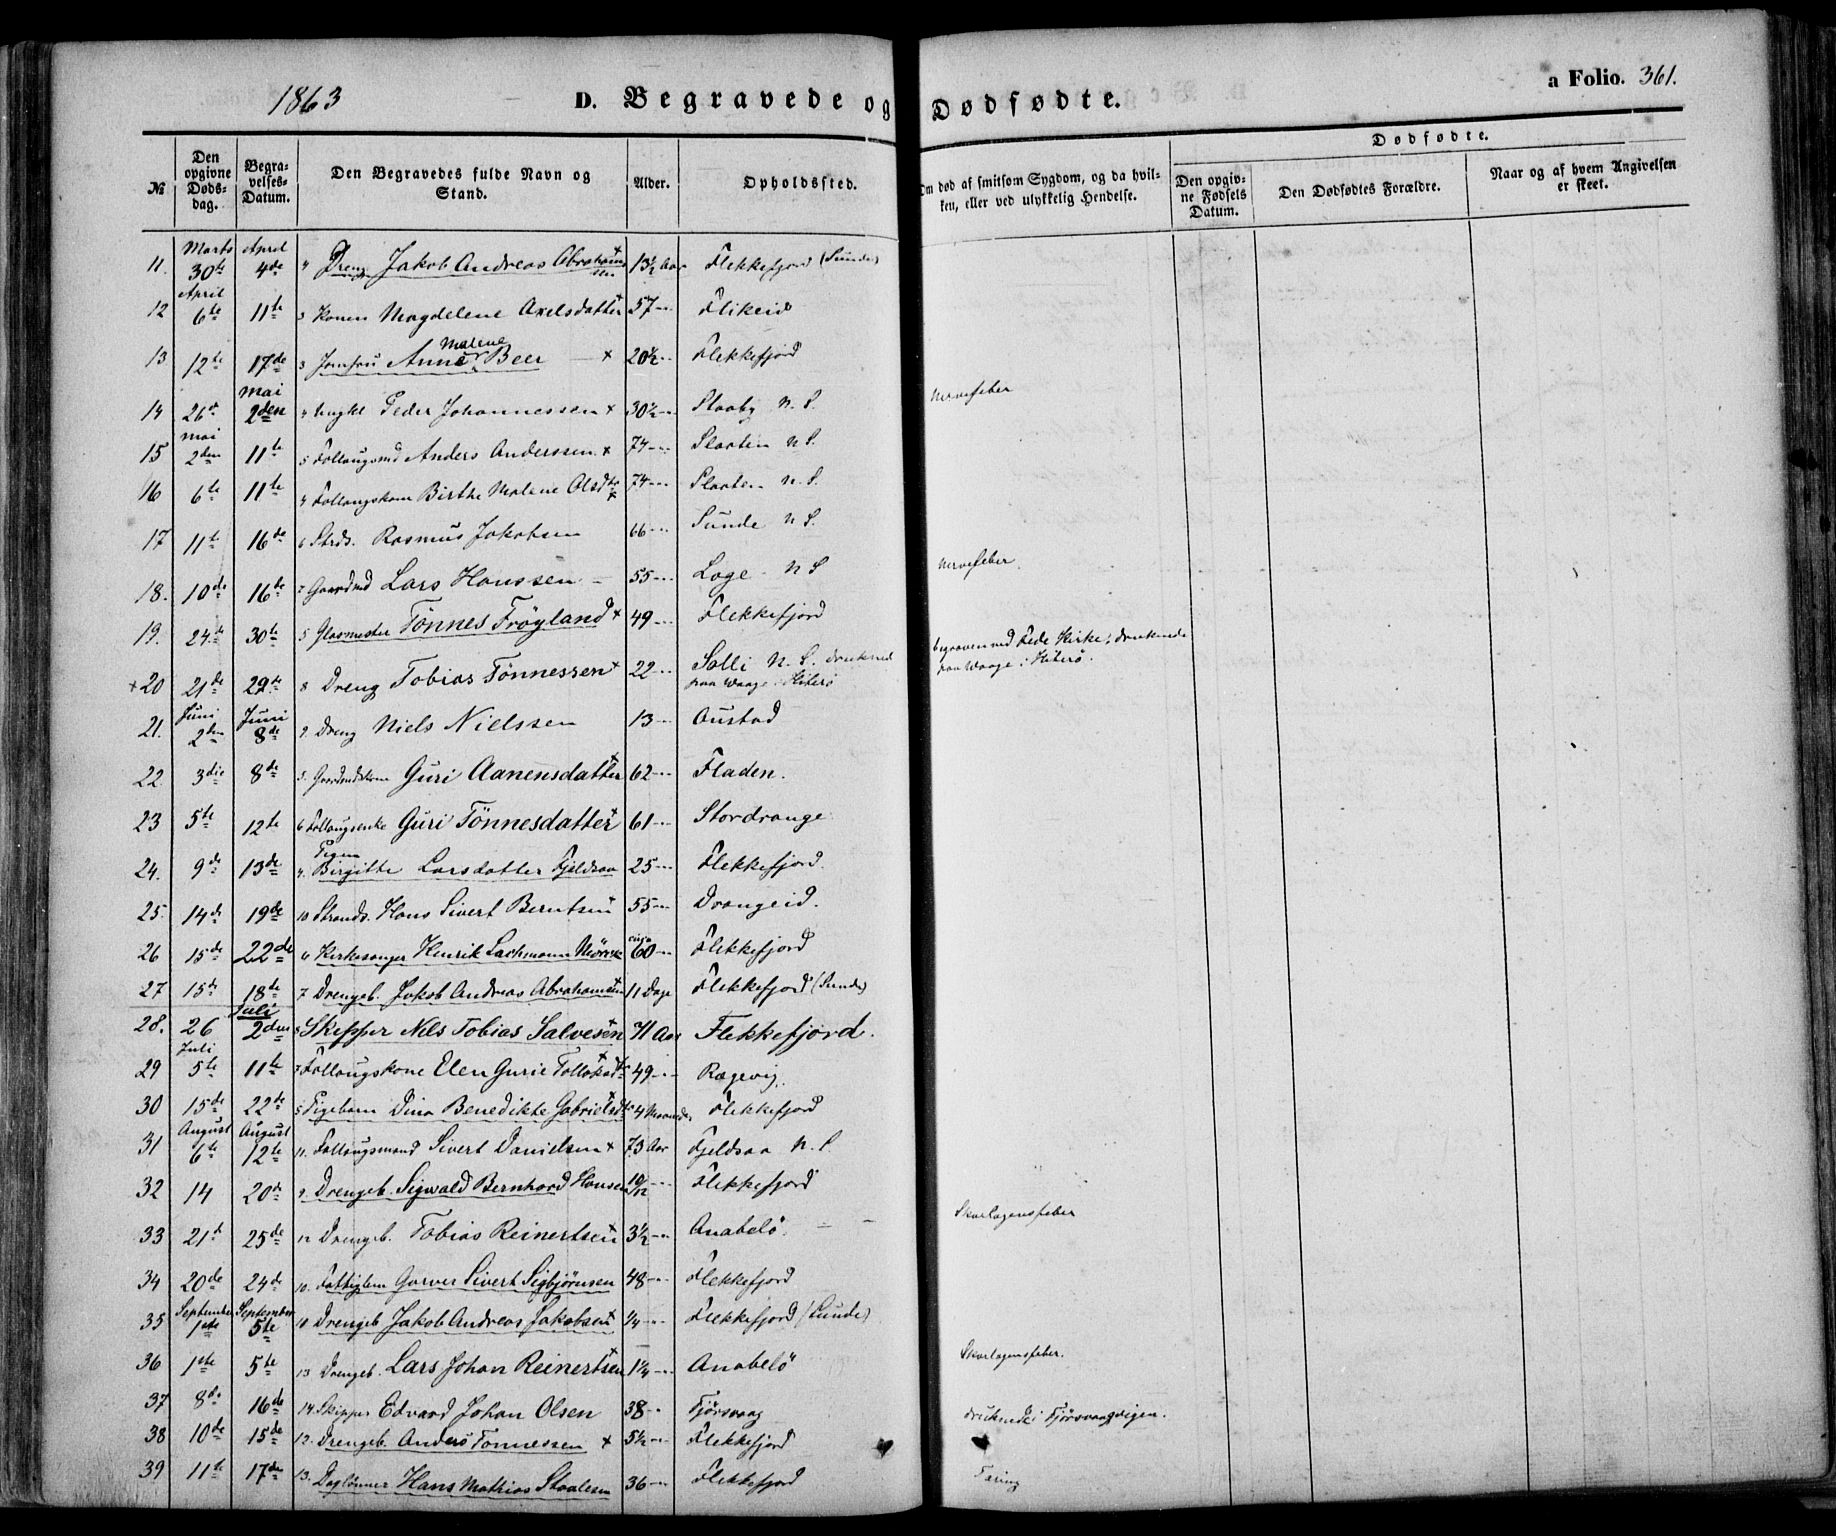 1863 D. Begravede og Dødfødte. a Folio. 361.
Dødfødte.
№ Den opgivne Døds-dag. Begra-velses-Datum. Den Begravedes fulde Navn og Stand. Alder. Opholdssted. Om død af smitsom Sygdom, og da hvil-ken, eller ved ulykkelig Hendelse. Den opgiv-ne Fødsels Datum. Den Dødfødtes Forældre. Naar og af hvem Angivelsen er skeet.
Marts April
11. 30te 4de 4 Dreng Jakob Andreas Abrahamsen 13½ Aar Flekkefjord (Sunde)
April
12 6te 11te 3 Konen Magdelene Axelsdatter 57 Flikeid
13 12te 17de 3 Jomfru Anne Malene Beer 20½ Flekkefjord
Mai
14 26de 2den 4 Ungkl Peder Johannessen 30½ Staaby N. S. Nervefeber
Mai
15 2den 11te 5 Follaugsmd Anders Anderssen 74 Slaaten N S.
16 6te 11te 4 Follaugskone Birthe Malene Olsdtr 74 Slaaten N. S.
17 11te 16de 6 Strds. Rasmus Jakobsen 66 Sunde N S.
18. 10de 16de 7 Gaardmd Lars Hanssen 55 Loge N S Nervefeber.
19. 24de 30te 5 Glasmester Tönnes Fröyland 49 Flekkefjord
20 21de 29de 8 Dreng Tobias Tönnessen 22 Solli N. S. drukned paa Waage i Hiterö begraven ved Fede Kirke; druknede paa Waage i Hiterö.
Juni Juni
21. 2den 8de 9. Dreng Niels Nielssen 13 Austad
22 3die 8de 5. Gaardmdskone Guri Aanensdatter 62 Fladen.
23 5te 12te 6 Follaugsenke Guri Tönnesdatter 61 Stordrange
24. 9de 13de 4. Pigen Birgitte Larsdatter Fjeldsaa 25 Flekkefjord.
25. 14de 19de 10 Strands. Hans Sivert Berntsen 55 Drangeid.
26 15de 22de 6 Kirkesanger Henrik Lachmann 60 Flekkefjord
27 15de 18de 7 Drengeb. Jakob Andreas Abrahamsen 11 Dage Flekkefjord (Sunde)
Juli
28. 26 2den 8 Skipper Nils Tobias Salvesen 71 Aar Flekkefjord.
Juli
29 5te 11te 7 Follaugskone Elen Gurie 49 Rægevig.
30 15de 22de 5 Pigebarn Dina Benedikte Gabrielsdtr 4 Maaneder Flekkefjord
August August
31 6te 12te 11. Follaugsmand Sivert Danielsen 73 Aar Fjeldsaa N. S.
32 14 20de 9. Drengeb. Sigwald Bernhard Hansen 10/12 Flekkefjord
33 21de 25de 12 Drengeb. Tobias Reinertsen 3½ Anabelö. Skarlagensfeber
34 20de 24de 10. Fattiglem Garver Sivert Sigbjörnsen 48 Flekkefjord
September September
35 1ste 5te 10 Drengeb Jakob Andreas Jakobsen ¼ Flekkefjord (Sunde)
36 1ste 5te 13 Drengeb. Lars Johan Reinertsen 1¼ Anabelö Skarlagensfeber.
37 8de 16de 14 Skipper Edvard Johan Olsen 38 Fjörsvaag druknede i Fjörsvaagvigen.
38 10de 15de 12. Drengeb. Anders Tönnessen 5½ Flekkefjord
39 11te 17de 13. Daglönner Hans Mathias Staalesen 36 Flekkefjord Tæring